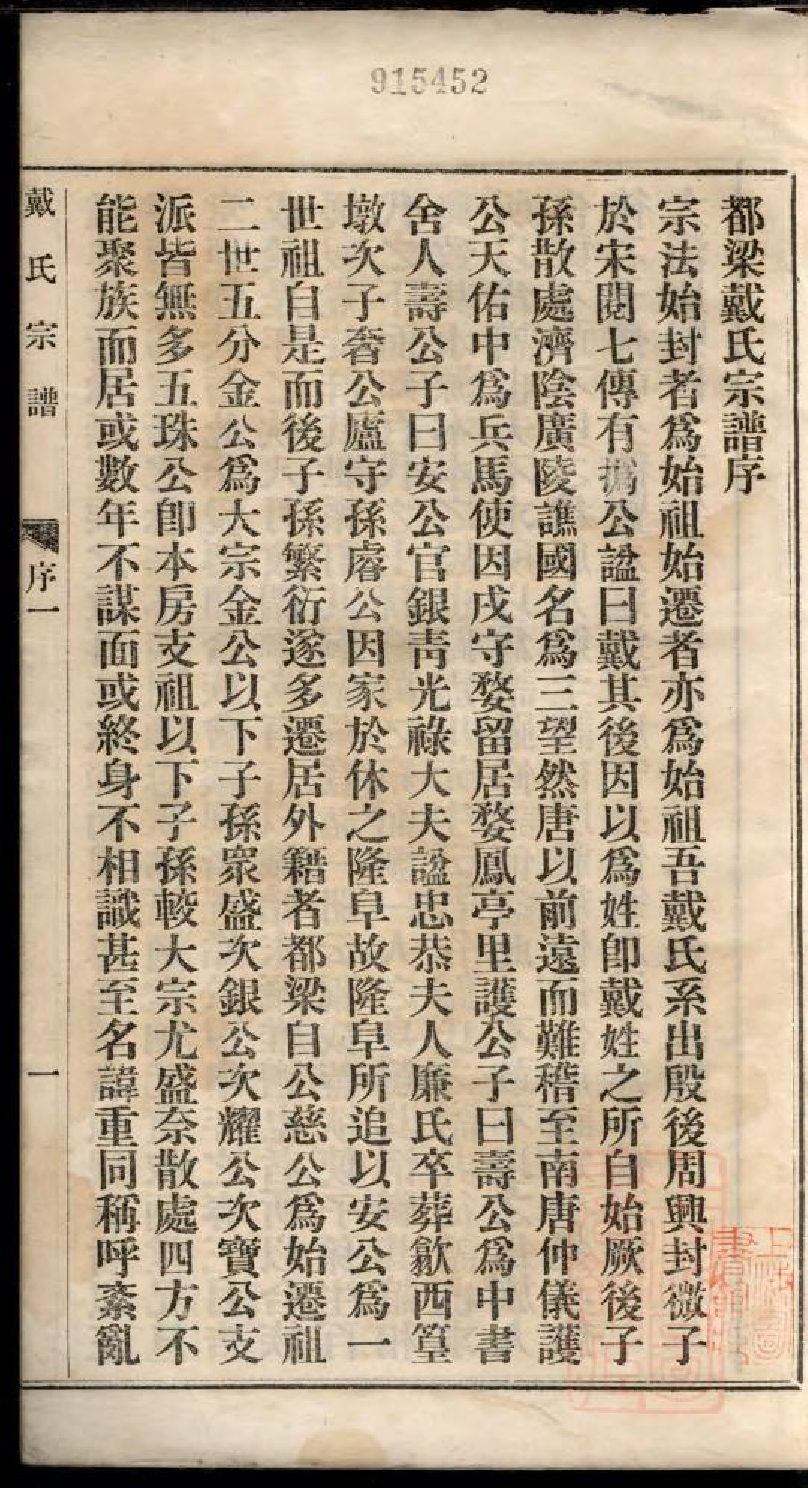 915452
都梁戴氏宗譜序
宗法始封者爲始祖始遷者亦爲始祖吾戴氏系出殷後周興封微子
於宋閱七傳有撝公諡曰戴其後因以爲姓卽戴姓之所自始厥後子
孫散處濟陰廣陵譙國名爲三望然唐以前遠而難稽至南唐仲儀護
公天佑中爲兵馬使因戍守婺留居婺鳳亭里護公子曰壽公爲中書
舍人壽公子曰安公官銀靑光祿大夫諡忠恭夫人廉氏卒葬歙西篁
墩次子奢公廬守孫睿公因家於休之隆阜故隆阜所追以安公爲一
世祖自是而後子孫繁衍遂多遷居外籍者都梁自公慈公爲始遷祖
二世五分金公爲大宗金公以下子孫衆盛次銀公次耀公次寶公支
派皆無多五珠公卽本房支祖以下子孫較大宗尤盛奈散處四方不
能聚族而居或數年不謀面或終身不相識甚至名諱重同稱呼紊亂
戴氏宗譜
序一
一